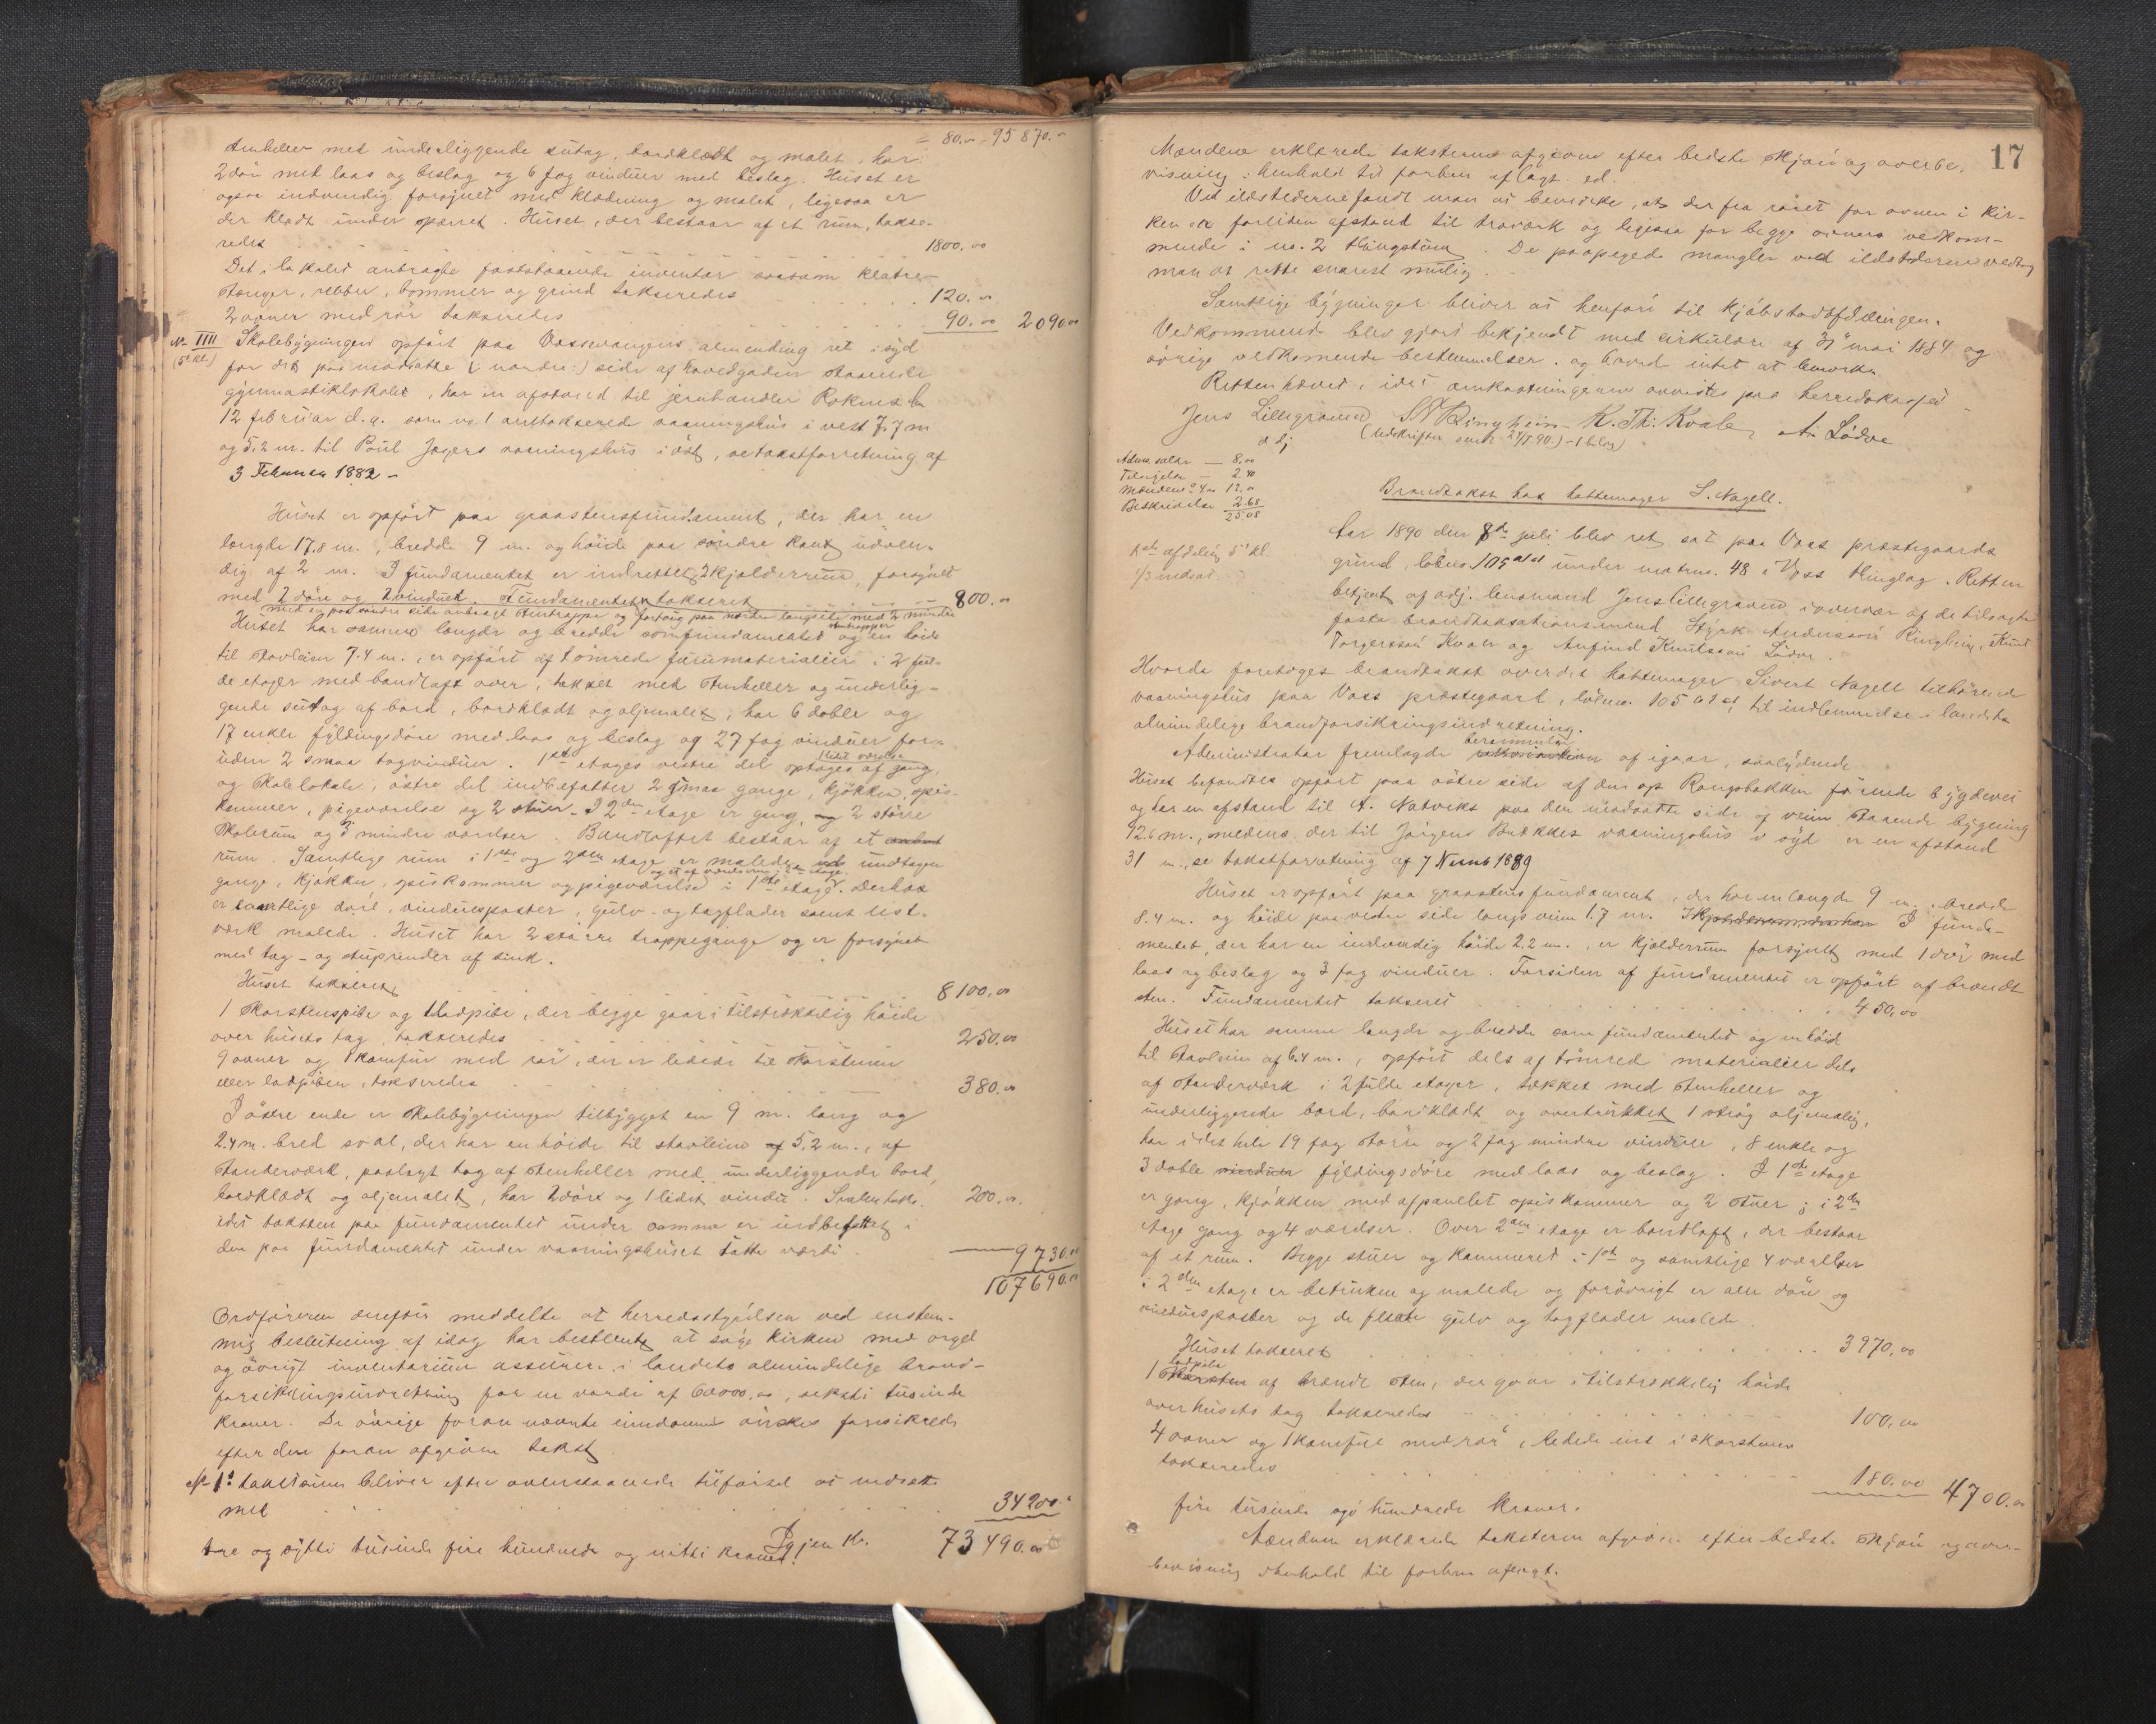 = 80.00 - 95 870.00
stenheller med underliggende sutag, bordklædt og malet, har
2 döre med laas og beslag og 6 fag vinduer med beslag. Huset er
ogsaa indvendig forsynet med klædning og malet, ligesaa er
der klædt under sperret. Huset, der bestaar af et rum, takse-
redes 1800.00
Det i lokalet anbragte faststaaende inventar saasom klatre-
stænger, ribber, bommer og grind takseredes 120.00
2 ovner med rör takseredes 90.00 2090.00
No IIII Skolebygningen opført paa Vossevangens almending ret i syd
(5 kl.) for det paa modsatte (: nordre :) side af Hovedgaden staaende
gymnastiklokale, har en afstand til jernhandler Roknes den
12 februar d.a. som no 1 omtakserede vaaningshus i vest 7.7 m
og 5.2 m. til Poul Jagers vaaningshus i öst, se takstforretning af
3 Februar 1882 -
Huset er opført paa graastensfundament, der har en
længde 17.8 m., bredde 9 m. og höide paa söndre kant udven-
dig af 2 m. I fundamentet er indrettet 2 kjælderrum, forsynet
med 2 döre og 2 vinduer. Fundamentet takseret 800.00
med en paa söndre side anbragt stentrappe og fortoug paa nordre langside med 2 mindre
stentrapper
Huset har samme længde og bredde som fundamentet og en höide
til stavleien 7.4 m., er opført af tömrede furumaterialier i 2 ful-
de etager med bandloft over, tækket med stenheller og underlig-
gende sutag af bord, bordklædt og oljemalet, har 6 doble og
17 enkle fyldingsdöre med laas og beslag og 27 fag vinduer for-
uden 2 smaa tagvinduer. 1ste etages vestre del optages af gang,
lidet værelse
og skolelokale, östre del indbefatter 2 smaa gange, kjökken, spis-
kammer, pigeværelse og 2 stuer. I 2den etage er gang, og 2 större
skolerum og 3 mindre værelser. Bandloftet bestaar af et
rum. Samtlige rum i 1ste og 2den etage er malede undtagen
og et af værelserne i 2den etage
gange, kjökken, spiskammer og pigeværelse i 1ste etage. Derhos
er samtlige döre, vinduesposter, gulv- og tagflader samt list-
værk malede. Huset har 2 större trappegange og er forsynet
med tag- og stuprender af sink.
Huset takseret 8100.00
1 skorstenspibe og 1 ladpibe, der begge gaar i tilstrækkelig höide
over husets tag, takseredes 250.00
9 ovner og 1 komfur med rör, der er ledede til skorstenen
eller ladpiben, takseredes 380.00
I östre ende er skolebygningen tilbygget en 9 m. lang og
2.4 m. bred sval, der har en höide til stavleien af 5.2 m., af
stenderværk, paalagt tag af stenheller med underliggende bord,
bordklædt og oljemalet, har 2 döre og 1 lidet vindu. Svalen taks. 200.00
idet taksten paa fundamentet under samme er indbefattet i
den paa fundamentet under vaaningshuset satte værdi.
9730.00
107690.00
Ordföreren derefter meddelte at herredsstyrelsen ved enstem-
mig beslutning af idag har bestemt at söge kirken med orgel
og övrigt inventarium assureret i landets almindelige brand-
forsikringsindretning for en værdi af 60000.00, seksti tusinde
kroner. De övrige foran nævnte eiendomme önskes forsikrede
efter den foran afgivne takst
No 1s takstsum bliver efter ovenstaaende tilförsel at nedsætte
med 34200
Igjen Kr. 73490.00
tre og sytti tusinde fire hundrede og nitti kroner.
17
Mændene erklærede taksterne afgivne efter bedste skjön og overbe-
visning i henhold til forhen aflagt ed.
Ved ildstederne fandt man at bemærke, at der fra röret for ovnen i kir-
ken er forliden afstand til træværk og ligesaa for begge ovners vedkom-
mende i no. 2 Thingstuen. De paapegede mangler ved ildstederne vedtog
man at rette snarest mulig.
Samtlige bygninger bliver at henføre til kjöbstadafdelingen.
Vedkommende blev gjort bekjendt med cirkulære af 31 mai 1884 og
övrige vedkommende bestemmelser, og havde intet at bemærke.
Retten hævet, idet omkostningerne anvistes paa herredskassen
Jens Lillegraven S A Ringheim K. Th. Kvale A. Lödve
adj (Udskrifter sendt 24/7 90) - 1 bilag)
Adm. salær — 8.00
Tilsigelse — 2.40
Mændene á 4.00 12.00
Beskrivelse 2.68
25.08
Brandtakst hos hattemager S. Nagell.
1ste afdeling 5te kl.
1/3 nedsat
Aar 1890 den 8de juli blev ret sat paa Voss præstegaards
grund, löbno 105 a1a1 under matrno. 48 i Voss thinglag. Retten
betjent af adj. lensmand Jens Lillegraven i overvær af de tilsagte
faste brandtakstationsmænd Styrk Andersson Ringheim, Knut
Torgersson Kvale og Anfind Knutsson Lödve.
Hvorda foretoges brandtakst over det hattemager Sivert Nagell tilhörende
vaaningshus paa Voss præstegaard, löbno. 105 a1a1, til indlemmelse i landets
almindelige brandforsikringsindretning.
Administrator fremlagde berammelse af igaar, saalydende
Huset befandtes opfört paa östre side af den op Rongsbakken förende bygdevei
og har en afstand til A. Natviks paa den modsatte side af veien staaende bygning
12.6 m., medens der til Jörgens Bækkes vaaningshus i syd er en afstand
31 m., se takstforretning af 7 Novemb 1889
Huset er opfört paa graastensfundament, der har en længde 9 m., bredde
8.4 m. og höide paa vestre side langs veien 1.7 m. I funda-
mentet, der har en indvendig höide 2.2 m., er kjælderrum forsynet med 1 dör med
laas og beslag og 3 fag vinduer. Forsiden af fundamentet er opfört af brændt
sten. Fundamentet takseret 450.00
Huset har samme længde og bredde som fundamentet og en höide
til stavleien af 6.4 m., opfört dels af tömred materialier dels
af stenderværk i 2 fulde etager, tækket med stenheller og
underliggende bord, bordklædt og overströkket 1 strög oljemaling,
har i det hele 19 fag större og 2 fag mindre vinduer, 8 enkle og
3 doble vinduer fyldingsdöre med laas og beslag. I 1ste etage
er gang, kjökken med afpanelet spiskammer og 2 stuer; i 2den
etage gang og 4 værelser. Over 2den etage er bandloft, der bestaar
af et rum. Begge stuer og kammeret i 1ste og samtlige 4 værelser
i 2den etage er betrukne og malede og forövrigt er alle döre og
vinduesposter og de fleste gulv og tagflader malede.
Huset takseret 3970.00
ladpibe
1 Skorsten af brændt sten, der gaar i tilstrækkelig höide
over husets tag takseredes 100.00
4 ovner og 1 komfur med rör, ledede ind i skorstenen
takseredes 180.00 4700.00
fire tusinde syv hundrede kroner.
Mændene erklærede taksterne afgivne efter bedste skjön og over-
bevisning i henhold til forhen aflagt.